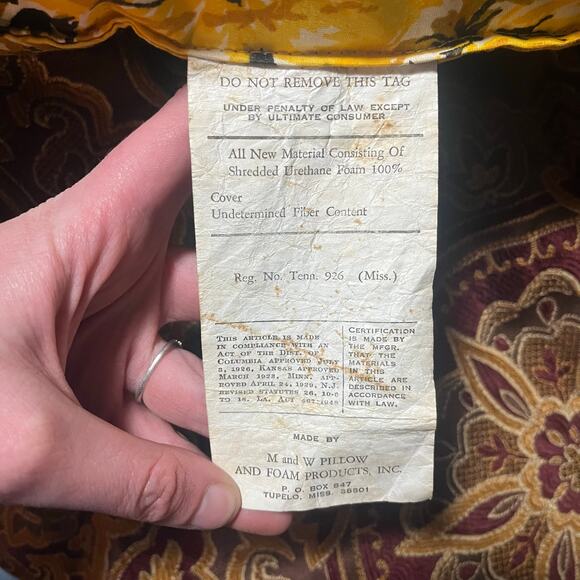 DO NOT REMOVE THIS TAG
UNDER PENALTY OF LAW EXCEPT
BY ULTIMATE CONSUMER
All New Material Consisting Of
Shredded Urethane Foam 100%
Cover
Undetermined Fiber Content
Reg. No. Tenn. 926 (Miss.)
THIS ARTICLE IS MADE
IN COMPLIANCE WITH AN
ACT OF THE DIST. OF
COLUMBIA APPROVED JULY
3, 1926, KANSAS APPROVED
MARCH 1923, MINN. APP-
ROVED APRIL 24, 1929, N.J.
REVISED STATUTES 26, 10-6
TO 18. LA. ACT 467-1948
CERTIFICATION
IS MADE BY
THE MFGR.
THAT THE
MATERIALS
IN THIS
ARTICLE ARE
DESCRIBED IN
ACCORDANCE
WITH LAW.
MADE BY
M and W PILLOW
AND FOAM PRODUCTS, INC.
P. O. BOX 847
TUPELO, MISS. 38801